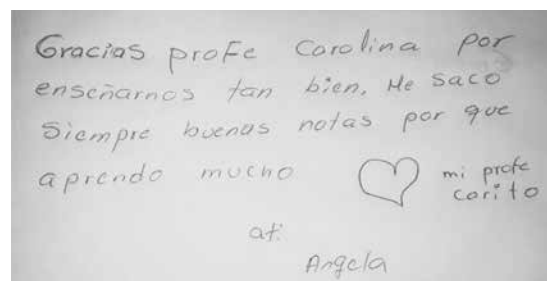 Gracias profe Carolina por
enseñarnos tan bien, Me saco
Siempre buenas notas por que
aprendo mucho
mi profe
carito
at:
Angela